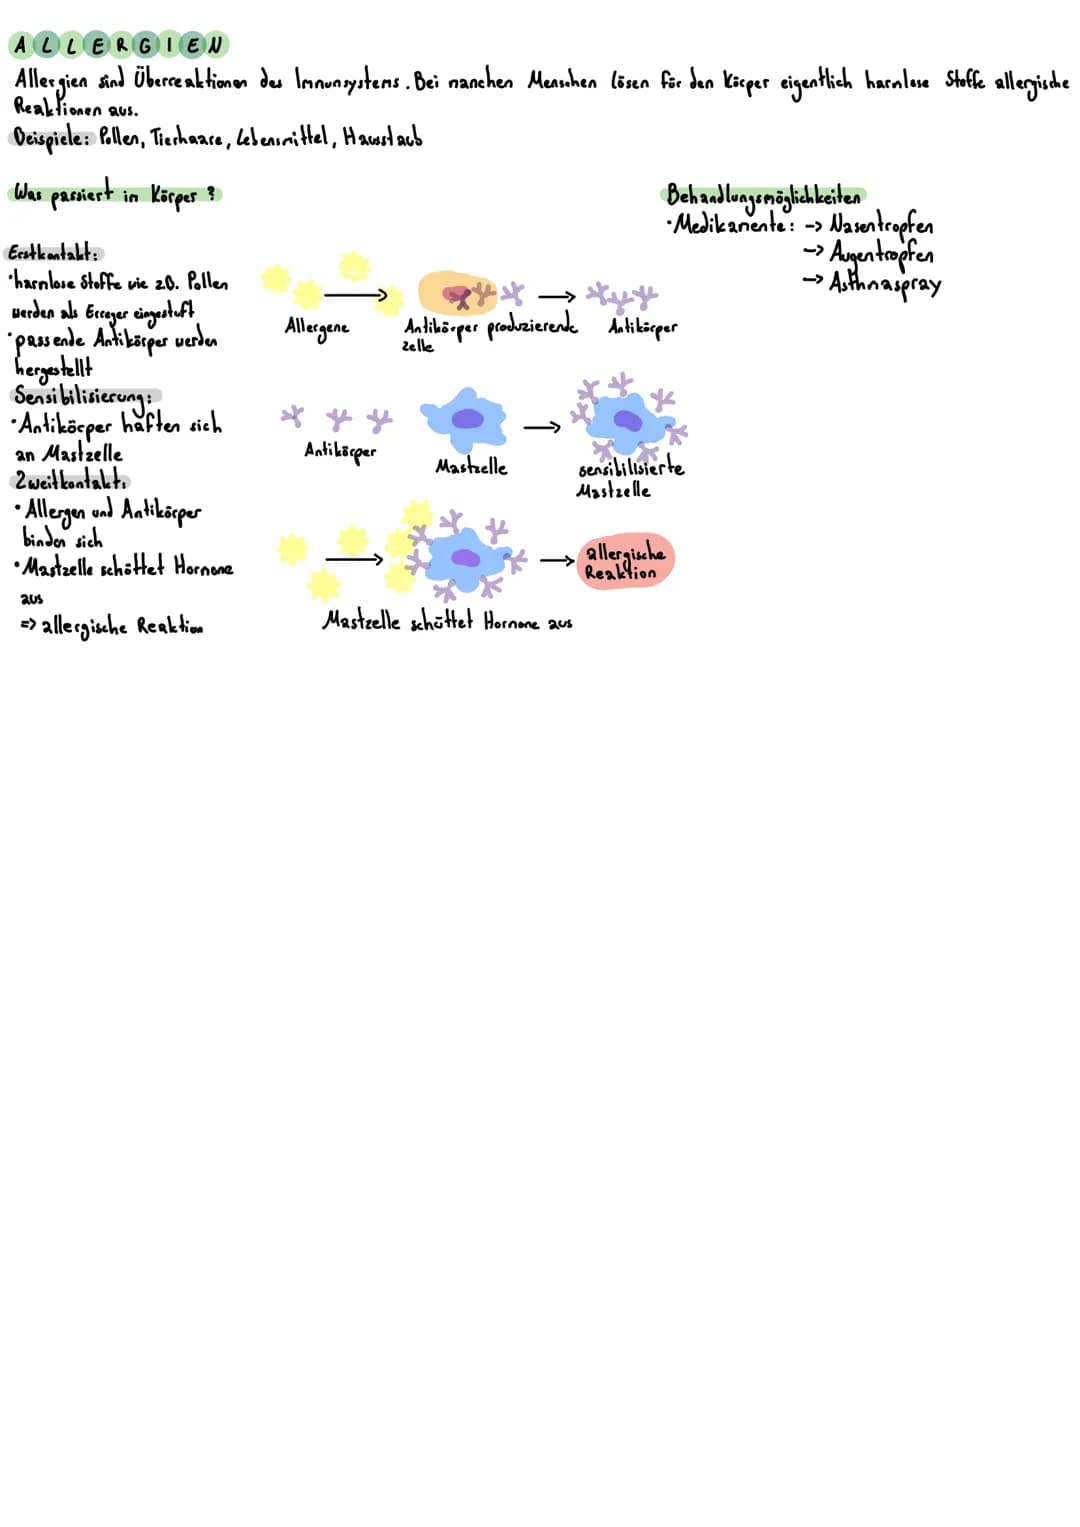 ALLERGIEN
Allergien sind Überreaktionen des Immunsystems. Bei manchen Menschen lösen für den Körper eigentlich harmlose Stoffe allergische
Reaktionen aus.
Beispiele: Pollen, Tierhaare, Lebensmittel, Hausstaub
Was passiert im Körper?
Erstkontakt:
·harmlose Stoffe wie z.B. Pollen
werden als Erreger eingestuft
·passende Antikörper werden
hergestellt
Sensibilisierung:
·Antikörper haften sich
an Mastzelle
Zweitkontakt:
·Allergen und Antikörper
binden sich
·Mastzelle schüttet Hormone
aus
=> allergische Reaktion
Allergene
Antikörper produzierende
zelle
Antikörper
Antikörper
Mastzelle
sensibilisierte
Mastzelle
allergische
Reaktion
Mastzelle schüttet Hormone aus
Behandlungsmöglichkeiten
·Medikamente: -> Nasentropfen
-> Augentropfen
-> Asthmaspray